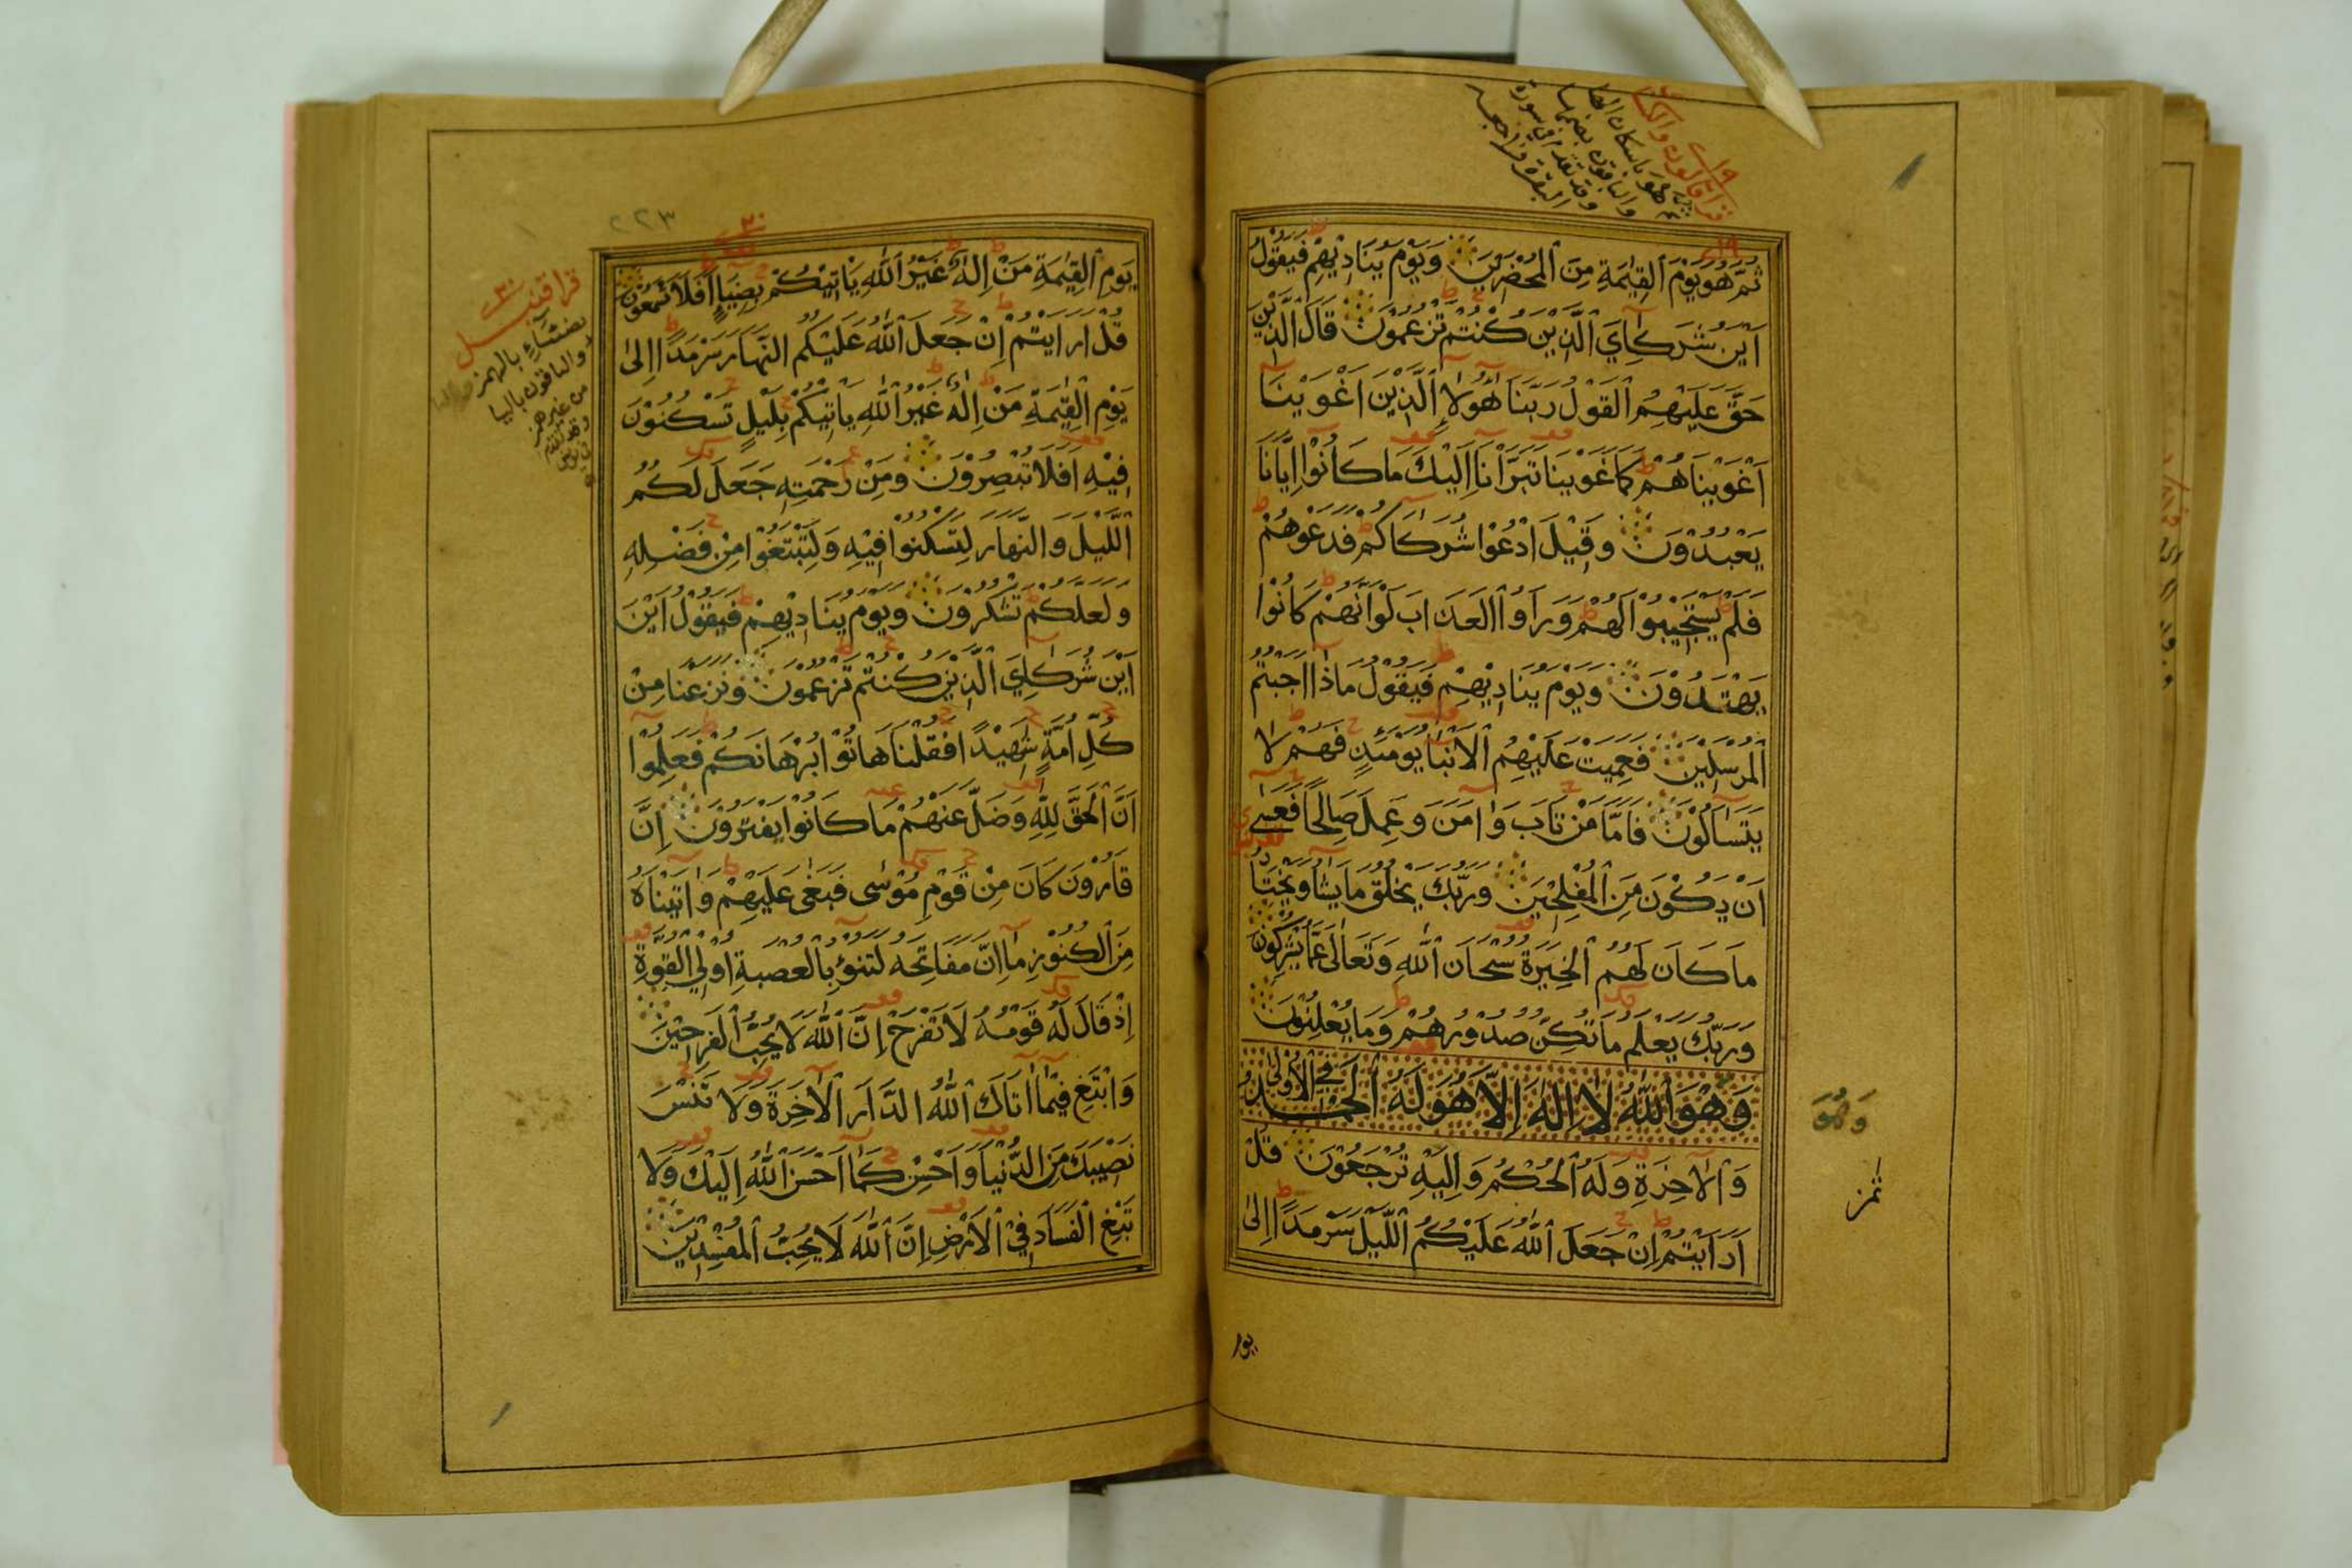 قرا قالون والكسائي
ثم هو باسكان الها
والباقون بضمها
وقد تقدم في سورة
البقرة فراجعه
ثُمَّ هُوَ يَوْمَ الْقِيٰمَةِ مِنَ الْمُحْضَرِيْنَ وَيَوْمَ يُنَادِيْهِمْ فَيَقُوْلُ
اَيْنَ شُرَكَاۤئِيَ الَّذِيْنَ كُنْتُمْ تَزْعُمُوْنَ قَالَ الَّذِيْنَ
حَقَّ عَلَيْهِمُ الْقَوْلُ رَبَّنَا هٰۤؤُلَاۤءِ الَّذِيْنَ اَغْوَيْنَا
اَغْوَيْنَاهُمْ كَمَا غَوَيْنَا تَبَرَّأْنَا اِلَيْكَ مَا كَانُوْا اِيَّانَا
يَعْبُدُوْنَ وَقِيْلَ ادْعُوْا شُرَكَاۤكُمْ فَدَعَوْهُمْ
فَلَمْ يَسْتَجِيْبُوْا لَهُمْ وَرَاَوُا الْعَذَابَ لَوْ اَنَّهُمْ كَانُوْا
يَهْتَدُوْنَ وَيَوْمَ يُنَادِيْهِمْ فَيَقُوْلُ مَاذَا اَجَبْتُمُ
الْمُرْسَلِيْنَ فَعَمِيَتْ عَلَيْهِمُ الْاَنْبَاۤ يَوْمَئِذٍ فَهُمْ لَا
يَتَسَاۤلُوْنَ فَاَمَّا مَنْ تَابَ وَاٰمَنَ وَعَمِلَ صَالِحًا فَعَسٰى
اَنْ يَكُوْنَ مِنَ الْمُفْلِحِيْنَ وَرَبُّكَ يَخْلُقُ مَا يَشَاۤ وَيَخْتَارُ
مَا كَانَ لَهُمُ الْخِيَرَةُ سُبْحَانَ اللّٰهِ وَتَعَالٰى عَمَّا يُشْرِكُوْنَ
وَرَبُّكَ يَعْلَمُ مَا تُكِنُّ صُدُوْرُهُمْ وَمَا يُعْلِنُوْنَ
وَهُوَ اللّٰهُ لَا اِلٰهَ اِلَّا هُوَ لَهُ الْحَمْدُ فِي الْاُوْلٰى
وَالْاٰخِرَةِ وَلَهُ الْحُكْمُ وَاِلَيْهِ تُرْجَعُوْنَ قُلْ
اَرَاَيْتُمْ اِنْ جَعَلَ اللّٰهُ عَلَيْكُمُ الَّيْلَ سَرْمَدًا اِلٰى
وَهُوَ
ثمن
يوم
٢٢٣
يَوْمِ الْقِيٰمَةِ مَنْ اِلٰهٌ غَيْرُ اللّٰهِ يَاْتِيْكُمْ بِضِيَاۤءٍ اَفَلَا تَسْمَعُوْنَ
قُلْ اَرَاَيْتُمْ اِنْ جَعَلَ اللّٰهُ عَلَيْكُمُ النَّهَارَ سَرْمَدًا اِلٰى
يَوْمِ الْقِيٰمَةِ مَنْ اِلٰهٌ غَيْرُ اللّٰهِ يَاْتِيْكُمْ بِلَيْلٍ تَسْكُنُوْنَ
فِيْهِ اَفَلَا تُبْصِرُوْنَ وَمِنْ رَحْمَتِهٖ جَعَلَ لَكُمُ
الَّيْلَ وَالنَّهَارَ لِتَسْكُنُوْا فِيْهِ وَلِتَبْتَغُوْا مِنْ فَضْلِهٖ
وَلَعَلَّكُمْ تَشْكُرُوْنَ وَيَوْمَ يُنَادِيْهِمْ فَيَقُوْلُ اَيْنَ
اَيْنَ شُرَكَاۤئِيَ الَّذِيْنَ كُنْتُمْ تَزْعُمُوْنَ وَنَزَعْنَا مِنْ
كُلِّ اُمَّةٍ شَهِيْدًا فَقُلْنَا هَاتُوْا بُرْهَانَكُمْ فَعَلِمُوْا
اَنَّ الْحَقَّ لِلّٰهِ وَضَلَّ عَنْهُمْ مَا كَانُوْا يَفْتَرُوْنَ اِنَّ
قَارُوْنَ كَانَ مِنْ قَوْمِ مُوْسٰى فَبَغٰى عَلَيْهِمْ وَاٰتَيْنَاهُ
مِنَ الْكُنُوْزِ مَا اِنَّ مَفَاتِحَهٗ لَتَنُوْءُ بِالْعُصْبَةِ اُولِي الْقُوَّةِ
اِذْ قَالَ لَهٗ قَوْمُهٗ لَا تَفْرَحْ اِنَّ اللّٰهَ لَا يُحِبُّ الْفَرِحِيْنَ
وَابْتَغِ فِيْمَا اٰتَاكَ اللّٰهُ الدَّارَ الْاٰخِرَةَ وَلَا تَنْسَ
نَصِيْبَكَ مِنَ الدُّنْيَا وَاَحْسِنْ كَمَا اَحْسَنَ اللّٰهُ اِلَيْكَ وَلَا
تَبْغِ الْفَسَادَ فِي الْاَرْضِ اِنَّ اللّٰهَ لَا يُحِبُّ الْمُفْسِدِيْنَ
قرا قنبل
بضئاء بالهمز
والباقون باليا
من غير همز
وقد تقدم
في يونس